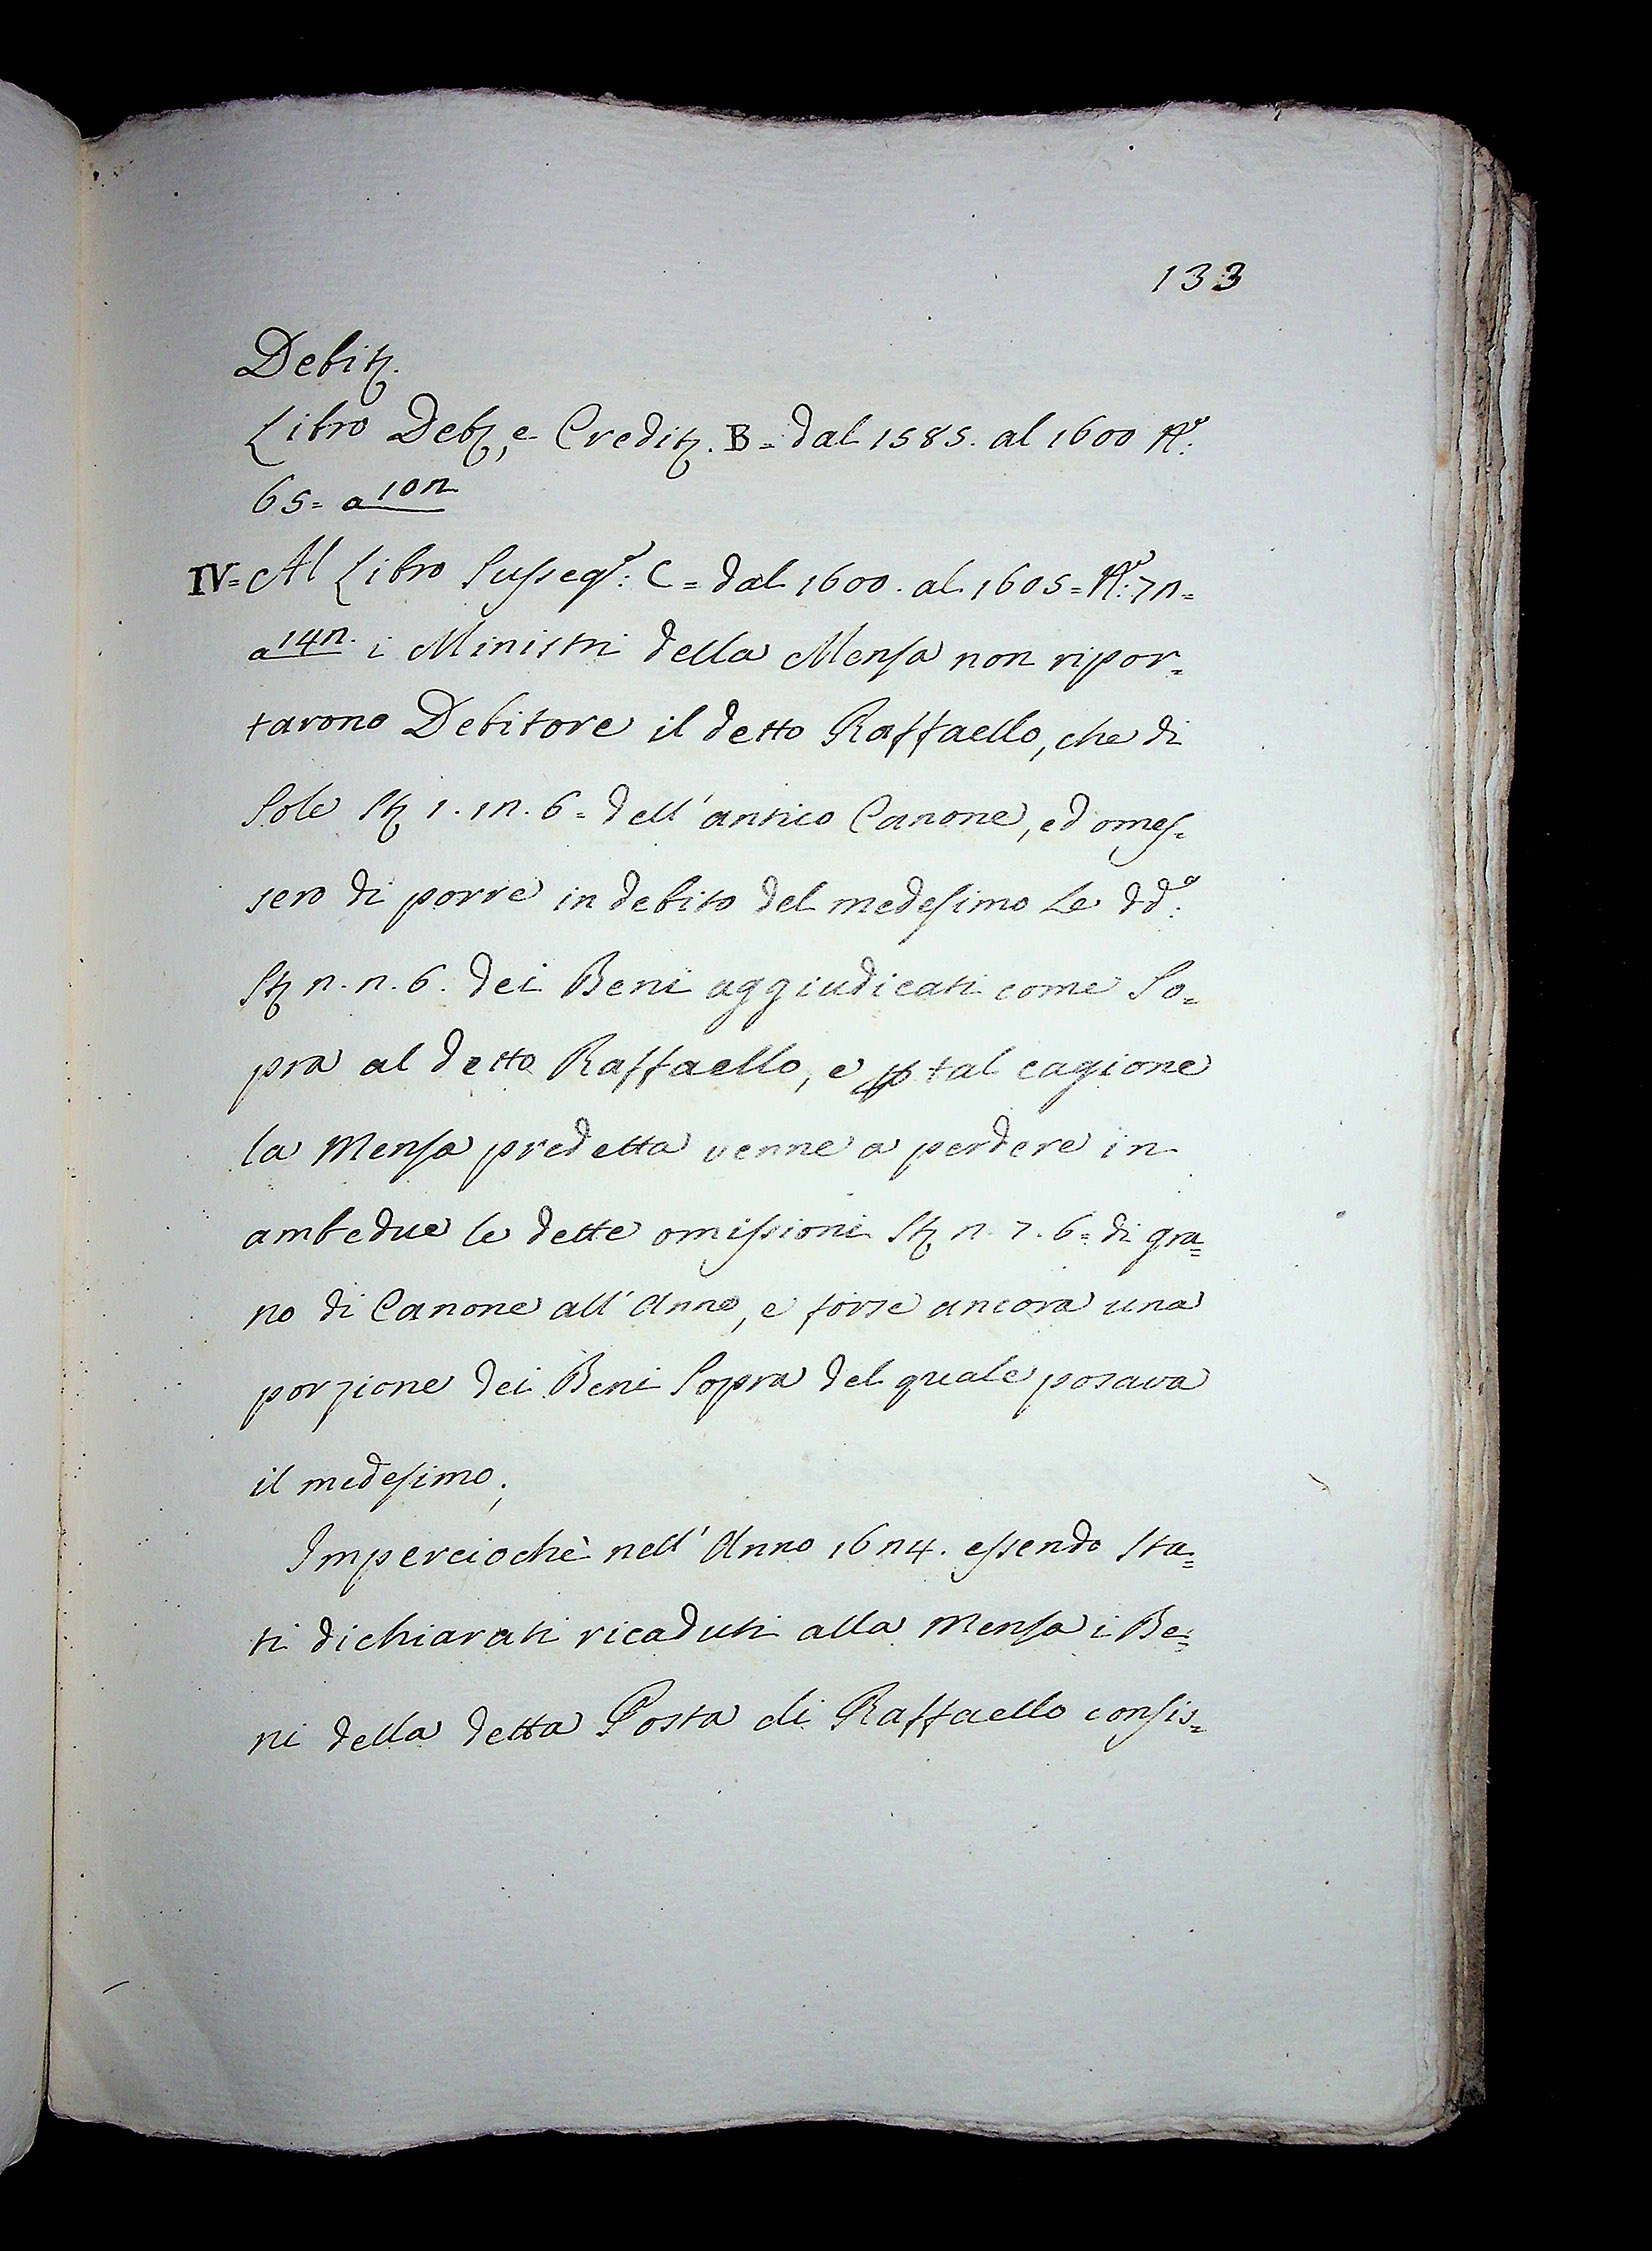 133
Debit.
Libro Deb, e Credit. B= dal 1585. al 1600 N.º
65= a 102
IV= Al Libro Susseg.e: C= dal 1600. al 1605= N.º: 72=
a 142. i Ministri della Mensa non ripor=
tarono Debitore il detto Raffaello, che di
Sole St 1. 12. 6= dell' antico Canone, ed omes=
sero di porre in debito del medesimo Le dd.e:
St 2. 2. 6. dei Beni aggiudicati come So=
pra al detto Raffaello, e p tal cagione
la Mensa predetta venne a perdere in
ambedue le dette omissioni St 2. 7. 6= di gra=
no di Canone all' Anno, e forse ancora una
porzione dei Beni Sopra del quale posava
il medesimo;
Imperciochè nell' Anno 1624. essendo Sta=
ti dichiarati ricaduti alla Mensa i Be=
ni della detta Posta di Raffaello consis=